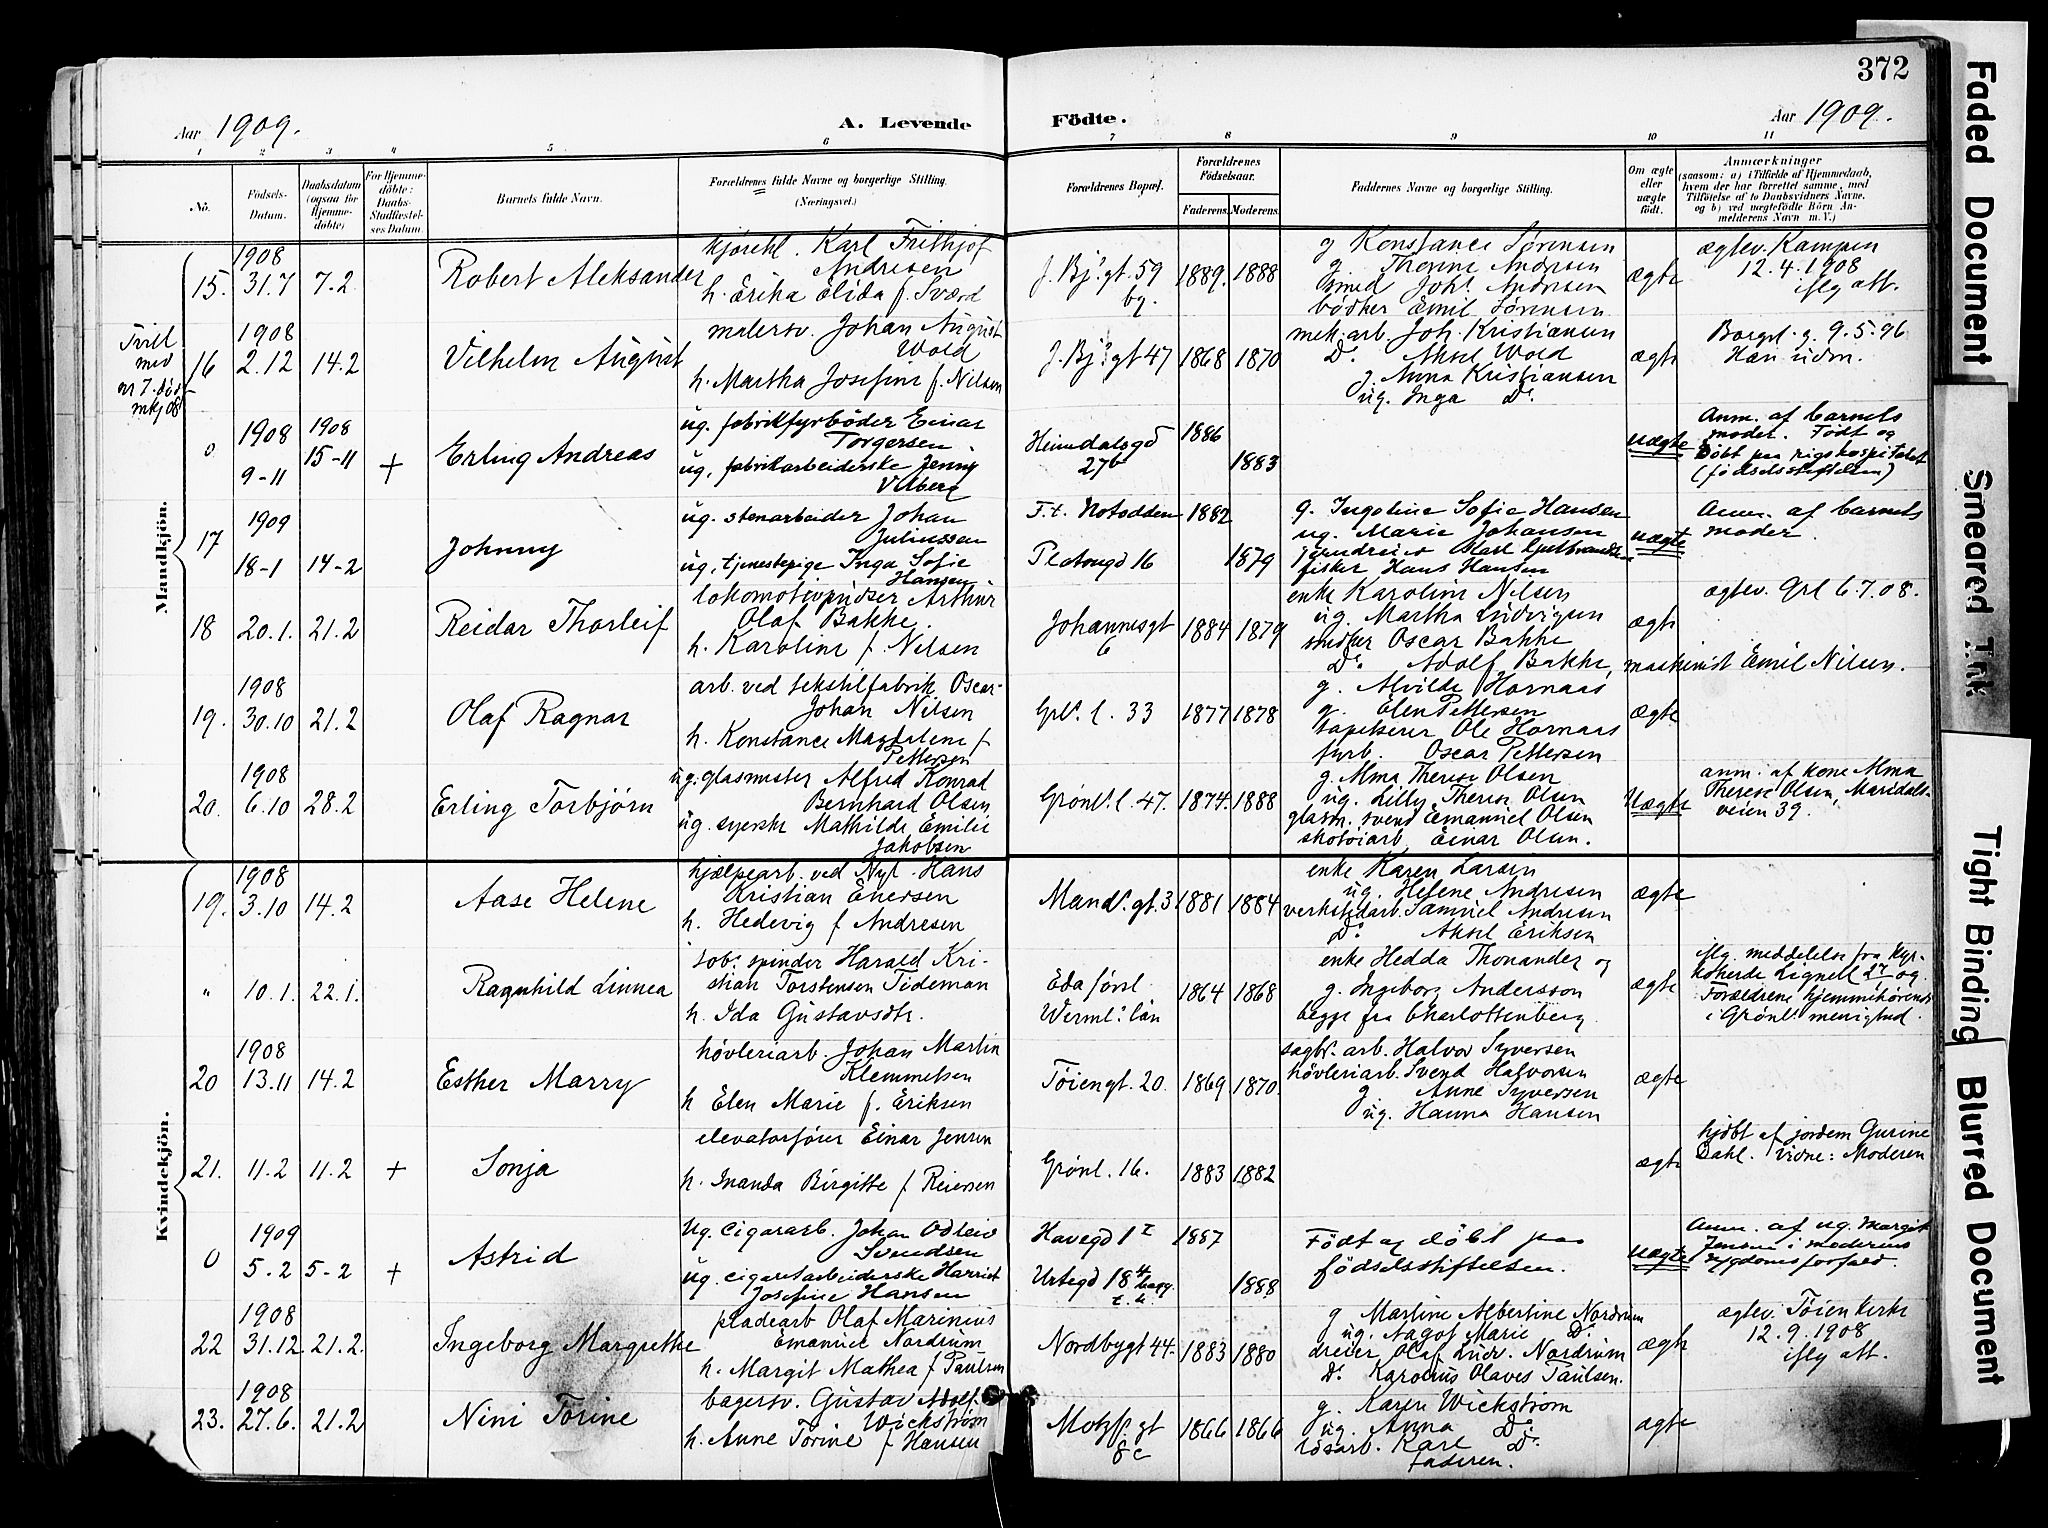 372
Aar 1909. A. Levende Födte. Aar 1909.
1 2 3 4 5 6 7 8 9 10 11
No.
Födsels-Datum.
Daabsdatum (ogsaa for Hjemme-döbte)
For Hjemme-döbte: Daabs-Stadfæstel-ses Datum.
Barnets fulde Navn.
Forældrenes fulde Navne og borgerlige Stilling.
(Næringsvei.)
Forældrenes Bopæl.
Forældrenes Födselsaar.
Faderens. Moderens.
Faddernes Navne og borgerlige Stilling.
Om ægte eller uægte födt.
Anmærkninger
(saasom: a) i Tilfælde af Hjemmedaab,
hvem der har forrettet samme, med
Tilföielse af to Daabsvidners Navne,
og b) ved uægtefödte Börn An-
melderens Navn m. V.)
Mandkjön.
15. 1908 31.7 7.2 Robert Aleksander
kjørekl. Karl Frithjof
Andresen
h. Erika Elida f. Sværd
J. Bj? gt. 59
by.
1889. 1888
g Konstance Sørensen
g. Therine Andresen
smed Johs. Andresen
bødker Emil Sørensen
ægte
ægtev. Kampen
12.4.1908
iflg att.
Tvill
med
nr 7. död
mkj 08
16 1908 2.12 14.2 Vilhelm August
malersv. Johan August
Wold
h. Martha Josefine f. Nilsen
J. Bj? gt 47
1868 1870
mek. arb. Joh. Kristiansen
Do. Aksel Wold
g. Anna Kristiansen
ug. Inga Do.
ægte
Borgerl. g. 9.5.96
Han udm.
0 1908 9-11 1908 15-11 + Erling Andreas
ug. fabrikfyrbøder Einar
Torgersen
ug. fabrikarbeiderske Jenny
Vilberg
Heimdalsgd
27b
1886 1883
uægte
Anm. af barnets
moder. Født og
Døbt paa rigshospitalet
(fødselsstiftelsen)
17 1909 18-1 14-2 Johnny
ug. stenarbeider Johan
Juliussen
ug. tjenestepige Inga Sofie
Hansen
F.t. Notodden
Platougd 16
1882 1879
g. Ingoline Sofie Hansen
ug. Marie Johansen
jerndreier Karl Gulbrandsen
fisker Hans Hansen
uægte
Anm. af barnets
moder.
18 20.1. 21.2 Reidar Thorleif
lokomotivpudser Arthur
Olaf Bakke.
h. Karoline f. Nilsen
Johannesgt
6
1884 1879
enke Karoline Nilsen
ug. Martha Ludvigsen
snedker Oscar Bakke
Do. Adolf Bakke, maskinist Emil Nilsen.
ægte
ægtev. Grl 6.7.08.
19. 1908 30.10 21.2 Olaf Ragnar
arb. ved tekstilfabrik Oscar
Johan Nilsen
h. Konstance Magdalene f
Pettersen
Grl. l. 33
1877 1878
g. Alvilde Hornaas
g. Elen Pettersen
tapetserer Ole Hornaas
fyrb. Oscar Pettersen
ægte
20. 1908 6.10 28.2 Erling Torbjørn
ug. glasmester Alfred Konrad
Bernhard Olsen
ug. syerske Mathilde Emilie
Jakobsen
Grønl. l. 47.
1874. 1888
g. Alma Therese Olsen
ug. Lilly Therese Olsen
glasm. svend Emanuel Olsen
skotøiarb. Einar Olsen.
Uægte
anm. af kone Alma
Therese Olsen, Maridals-
veien 39.
Kvindekjön.
19. 1908 3.10 14.2 Aase Helene
hjælpearb. ved Nyl. Hans
Kristian Enersen
h. Hedevig f Andresen
Mands. gt. 3
1881 1884
enke Karen Larsen
ug. Helene Andresen
verkstedarb. Samuel Andresen
Do. Aksel Eriksen
ægte
" 10.1. 22.1. Ragnhild Linnea
tob. spinder Harald Kri-
stian Torstensen Tideman
h. Ida Gustavsdtr.
Eda förs.
Werml. län
1864 1868
enke Hedda Thonander og
g. Ingeborg Andersson
begge fra Charlottenberg
ægte
iflg. meddelelse fra Kyr-
koherde Lignell og.
Forældrene hjemmehørende
i Grønl. menighed.
20 1908 13.11 14.2 Esther Marry
høvleriarb. Johan Martin
Klemmetsen
h Elen Marie f. Eriksen
Tøiengt. 20.
1869 1870.
sagbr. arb. Halvor Syversen
høvleriarb. Svend Halvorsen
g Anne Syversen
ug. Hanna Hansen
ægte
21. 11.2 11.2 + Sonja
elevatorfører Einar Jensen
h. Inanda Birgitte f Reiersen
Grønl. 16.
1883 1882
ægte
hjdbt af jordem Gurine
Dahl. Vidne: Moderen
0 1909 5.2 5-2 + Astrid
Ug. cigararb. Johan Odleiv
Svendsen
Ug. cigaretarbeiderske Harriet
Josefine Hansen
Havegd 1 I
Urtegd 18 4 bagg
t.h.
1887 1888
Født og døbt paa
fødselsstiftelsen.
uægte
Anm. af ug. Margit
Jensen i moderens
sygdomsforfald.
22 1908 31.12. 21.2. Ingeborg Margrethe
pladearb Olaf Marinius
Emanuel Nordrum
h. Margit Mathea f Paulsen
Nordbygt 44.
1883 1880
g Martine Albertine Nordrum
ug. Aagot Marie Do.
dreier Olaf Ludv. Nordrum
Do. Karolius Olaves Paulsen.
ægte
ægtev. Tøien kirke
12.9.1908
iflg att.
23. 1908 27.6. 21.2 Nini Torine
bagersv. Gustav Adolf
Wickstrøm
h. Anne Torine f Hansen
Motzf. gt
8c
1866 1866
g. Karen Wickstrøm
ug. Anna Do.
løsarb. Karl Do.
faderen.
ægte
Faded Document
Smeared Ink
Tight Binding
Blurred Document